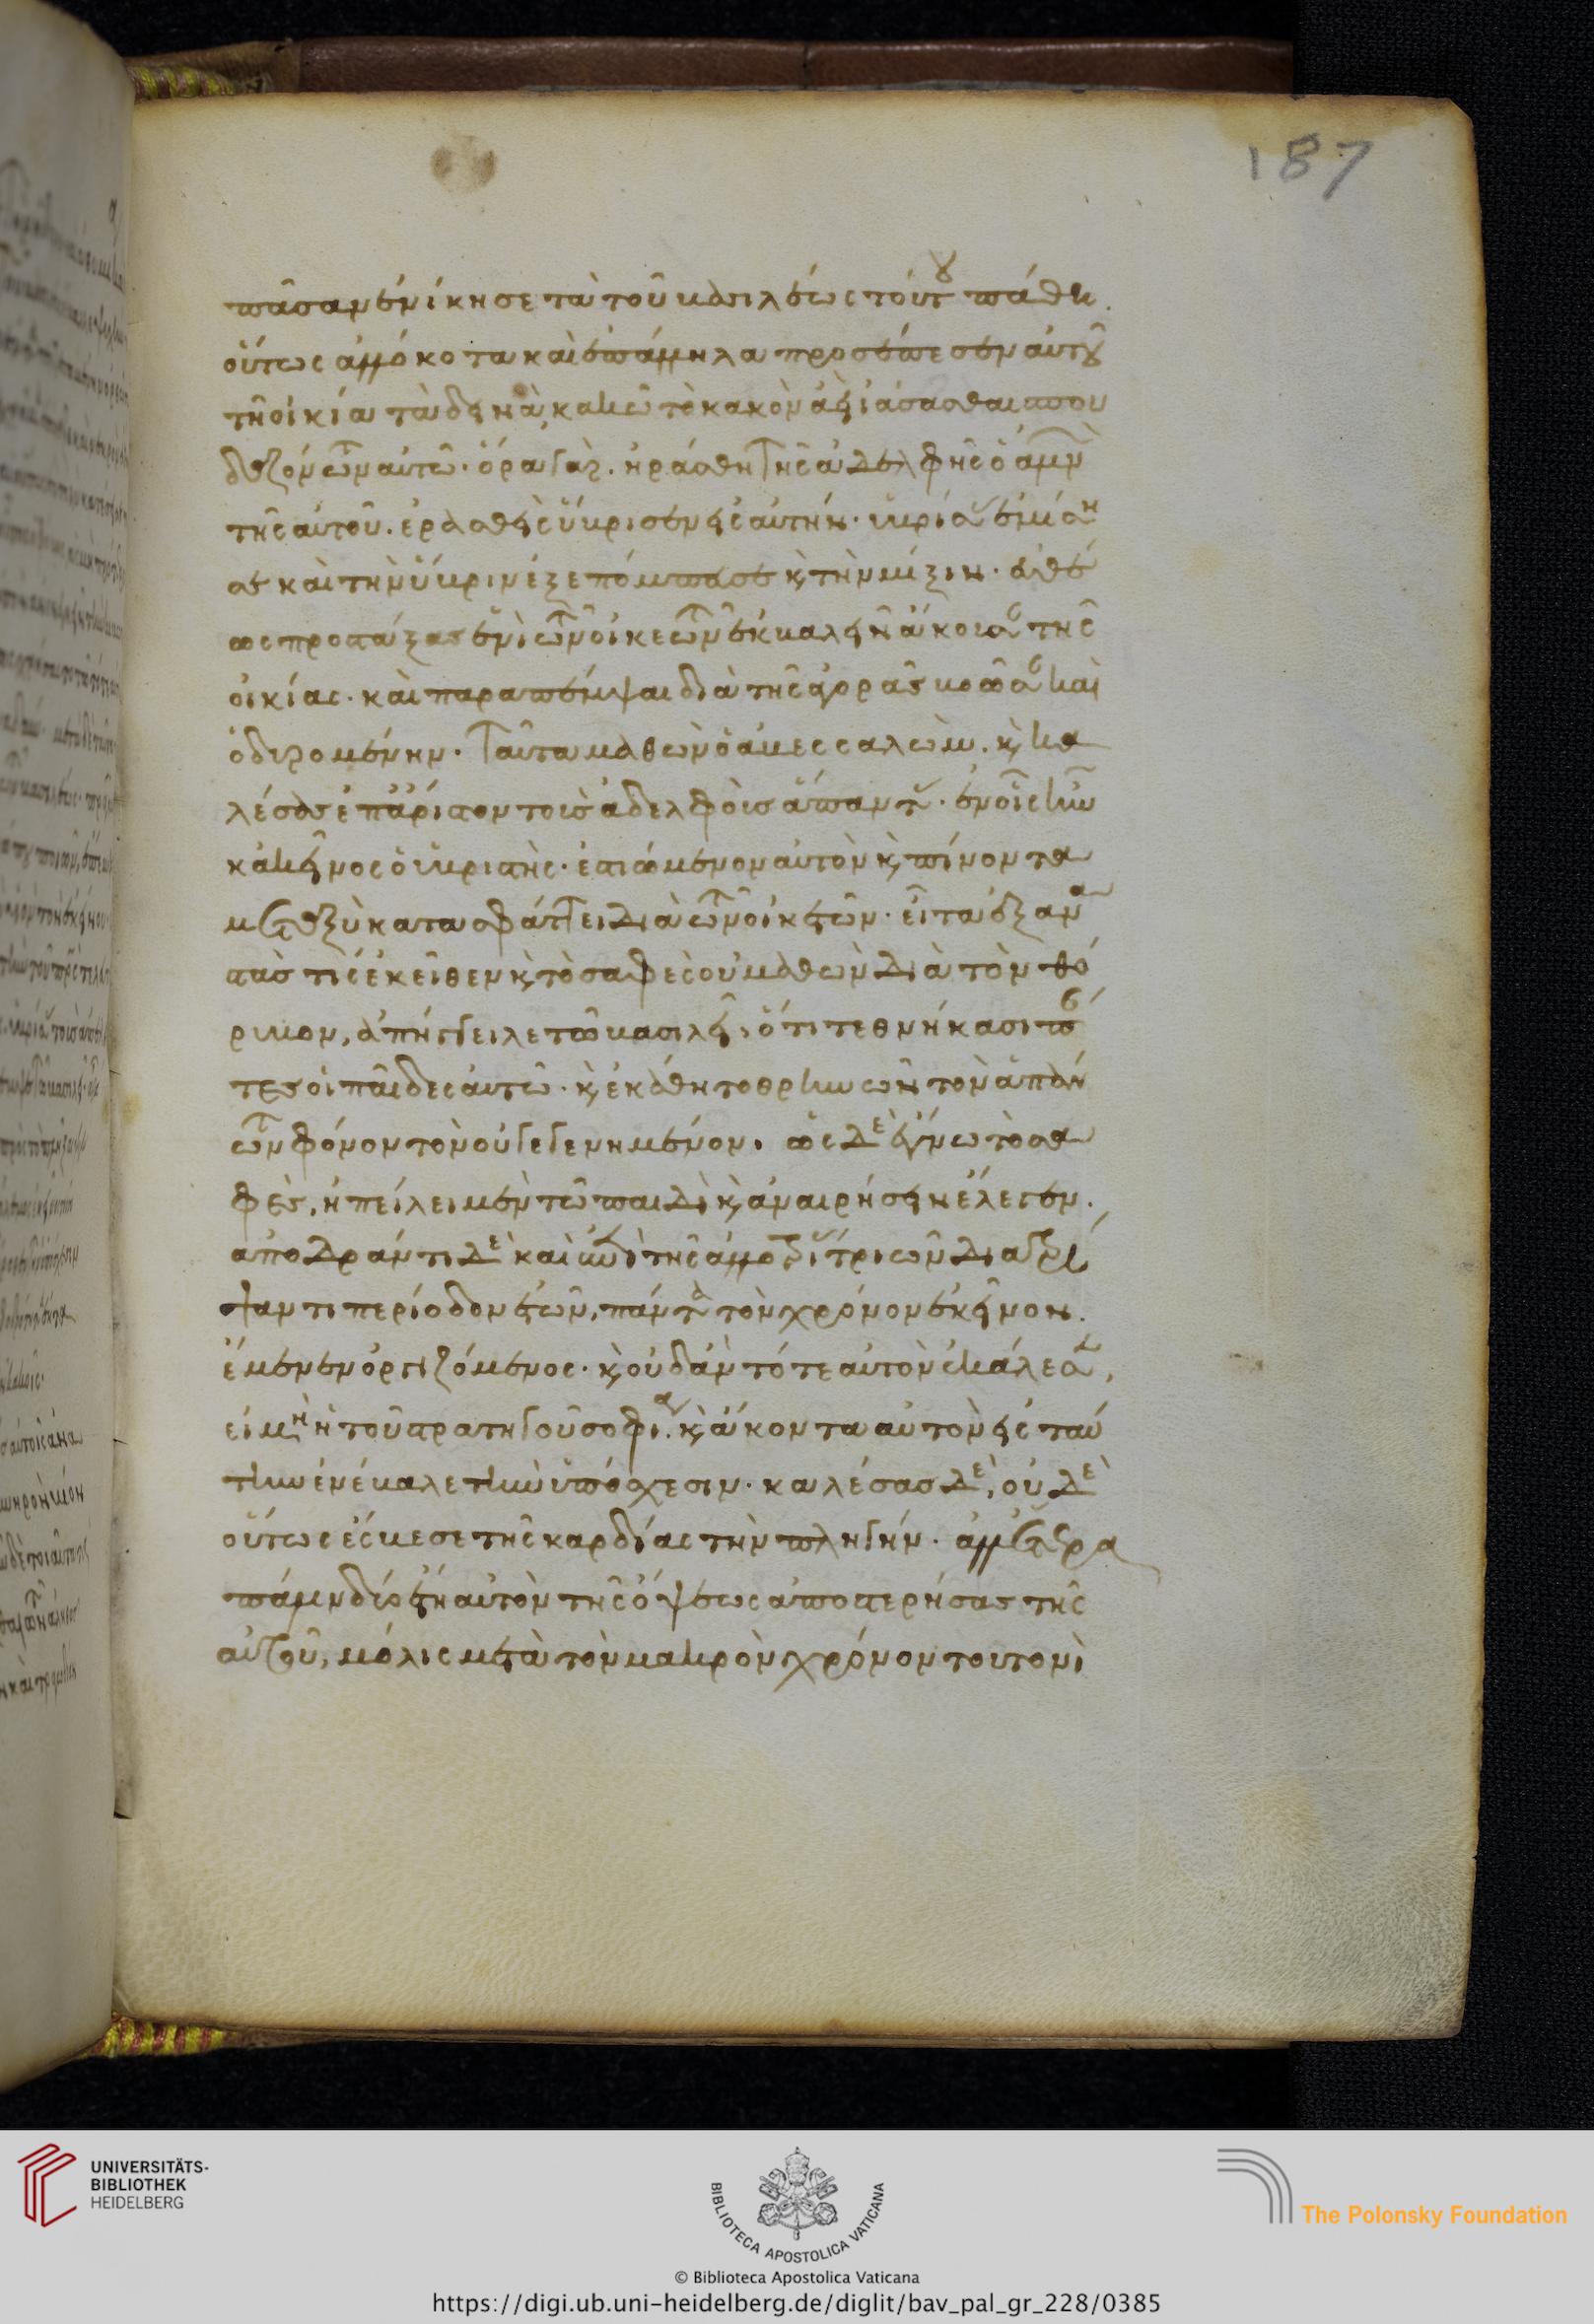 187
πᾶσαν ἐνίκησε τὰ τοῦ βασιλέως τούτου πάθη.
οὕτως ἀλλόκοτα καὶ ἐπάλληλα προσέπεσεν αὐτοῦ
τῆ οἰκία τὰ δεινὰ, καὶ τὸ κακὸν ἀεὶ ἰάσασθαι σπου
δαζόντων αὐτῶ. ὅρα γάρ. ἠράσθη τῆς ἀδελφῆς ὁ ἀμνὼν
τῆς αὐτοῦ. ἐρασθεὶς ὕβρισεν εἰς αὐτήν. ὑβρίσας ἐμίση
σε καὶ τὴν ὕβριν ἐξεπόμπευσε κ τὴν μίξιν. εὐθέ
ως προστάξας ἑνὶ τῶν οἰκετῶν ἐκβαλεῖν ἄκουσαν τῆς
οἰκίας. καὶ παραπέμψαι διὰ τῆς ἀγορᾶς βοῶσαν καὶ
ὀδυρομένην. ταῦτα μαθὼν ὁ ἀβεσσαλὼμ. κ κα
λέσας ἐπ' ἄριστον τοὺς ἀδελφοὺς ἅπαντας. ἐν οἷς ἦν
κἀκεῖνος ὁ ὑβριστὴς. ἑστιώμενον αὐτὸν κ πίνοντα
μεταξὺ κατασφάττει διὰ τῶν οἰκετῶν. εἶτα ἐξανα
στάς τις ἐκεῖθεν κ τὸ σαφὲς οὐ μαθὼν διὰ τὸν θό
ρυβον, ἀπήγγειλε τῶ βασιλεῖ, ὅτι τεθνήκασι πάν
τες οἱ παῖδες αὐτῶ. κ ἐκάθητο θρηνῶν τὸν ἁπάν
των φόνον τὸν οὐ γεγενημένον. ὡς δὲ ἔγνω τὸ σα
φὲς, ἠπείλει μὲν τῶ παιδὶ κ ἀναιρήσειν ἔλεγεν.
ἀποδράντι δὲ καὶ ἐπὶ τῆς ἀλλοτρίας τριῶν διατρί
ψαντι περίοδον ἐτῶν, πάντα τὸν χρόνον ἐκεῖνον.
ἔμενεν ὀργιζόμενος. κ οὐδ' ἂν τότε αὐτὸν ἐκάλεσεν,
εἰ μὴ ἡ τοῦ στρατηγοῦ σοφία. κ ἄκοντα αὐτὸν εἰς ταύ
την ἐνέβαλε τὴν ὑπόσχεσιν. καλέσας δὲ, οὐδὲ
οὕτως ἔσβεσε τῆς καρδίας τὴν πληγήν. ἀλλ' ἕτερα
πάλιν δύο ἔτη αὐτὸν τῆς ὄψεως ἀποστερήσας τῆς
αὐτοῦ, μόλις μετὰ τὸν μακρὸν χρόνον τουτονὶ
UNIVERSITÄTS-
BIBLIOTHEK
HEIDELBERG
BIBLIOTECA APOSTOLICA VATICANA
The Polonsky Foundation
© Biblioteca Apostolica Vaticana
https://digi.ub.uni-heidelberg.de/diglit/bav_pal_gr_228/0385